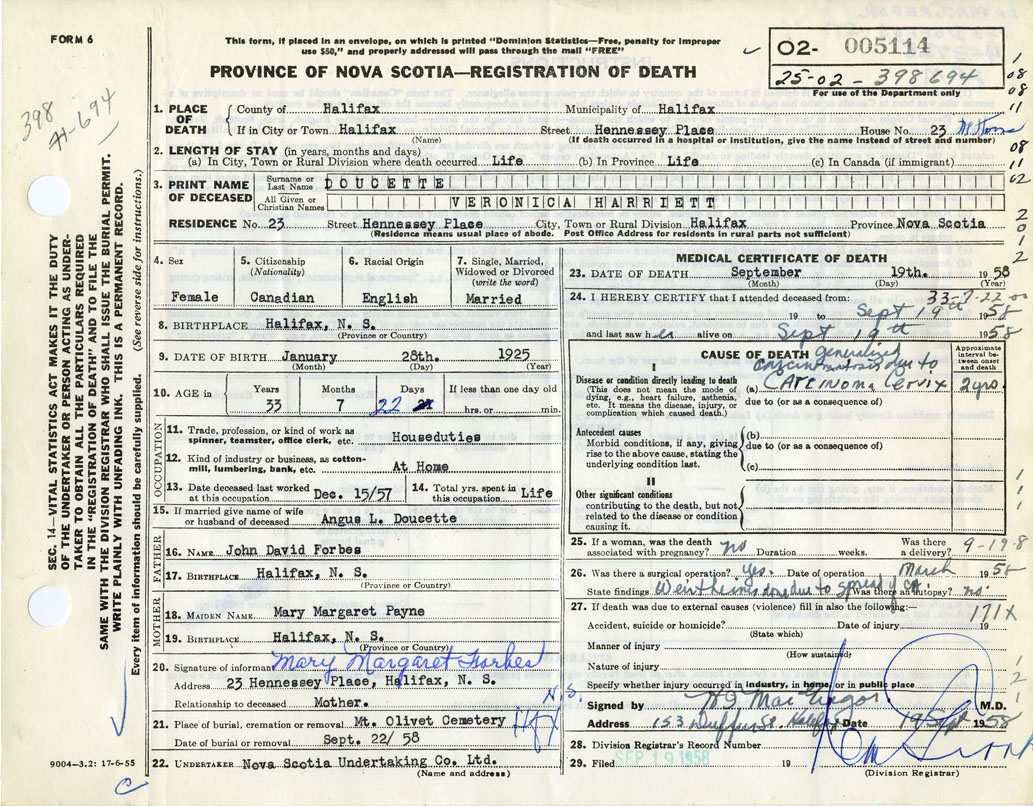 FORM 6
This form, if placed in an envelope, on which is printed "Dominion Statistics—Free, penalty for improper
use $50," and properly addressed will pass through the mail "FREE"
PROVINCE OF NOVA SCOTIA—REGISTRATION OF DEATH
02- 005114
25-02-398694
For use of the Department only
398
694
1. PLACE OF DEATH
County of Halifax Municipality of Halifax
If in City or Town Halifax Street Hennessey Place House No. 23
(Name) (If death occurred in a hospital or institution, give the name instead of street and number)
2. LENGTH OF STAY (in years, months and days)
(a) In City, Town or Rural Division where death occurred Life (b) In Province Life (c) In Canada (if immigrant)
3. PRINT NAME OF DECEASED
Surname or Last Name DOUCETTE
All Given or Christian Names VERONICA HARRIETT
RESIDENCE No. 23 Street Hennessey Place City, Town or Rural Division Halifax Province Nova Scotia
(Residence means usual place of abode. Post Office Address for residents in rural parts not sufficient)
4. Sex Female
5. Citizenship (Nationality) Canadian
6. Racial Origin English
7. Single, Married, Widowed or Divorced (write the word) Married
8. BIRTHPLACE Halifax, N. S.
(Province or Country)
9. DATE OF BIRTH January 28th. 1925
(Month) (Day) (Year)
10. AGE in Years 33 Months 7 Days 22 If less than one day old hrs. or min.
OCCUPATION
11. Trade, profession, or kind of work as spinner, teamster, office clerk, etc. Houseduties
12. Kind of industry or business, as cotton-mill, lumbering, bank, etc. At Home
13. Date deceased last worked at this occupation Dec. 15/57
14. Total yrs. spent in this occupation Life
15. If married give name of wife or husband of deceased Angus L. Doucette
FATHER
16. NAME John David Forbes
17. BIRTHPLACE Halifax, N. S.
(Province or Country)
MOTHER
18. MAIDEN NAME Mary Margaret Payne
19. BIRTHPLACE Halifax, N. S.
(Province or Country)
20. Signature of informant Mary Margaret Forbes
Address 23 Hennessey Place, Halifax, N. S.
Relationship to deceased Mother.
N.S.
21. Place of burial, cremation or removal Mt. Olivet Cemetery Hfx
Date of burial or removal Sept. 22/ 58
22. UNDERTAKER Nova Scotia Undertaking Co. Ltd.
(Name and address)
MEDICAL CERTIFICATE OF DEATH
23. DATE OF DEATH September 19th. 1958
(Month) (Day) (Year)
24. I HEREBY CERTIFY that I attended deceased from: 33-7-22
19 to Sept 19th 1958
and last saw her alive on Sept 19th 1958
CAUSE OF DEATH
Approximate interval between onset and death
I
Disease or condition directly leading to death
(This does not mean the mode of dying, e.g., heart failure, asthenia, etc. It means the disease, injury, or complication which caused death.)
generalized
carcinomatosis due to
(a) Carcinoma Cervix 2 yrs.
due to (or as a consequence of)
Antecedent causes
Morbid conditions, if any, giving rise to the above cause, stating the underlying condition last.
(b)
due to (or as a consequence of)
(c)
II
Other significant conditions
contributing to the death, but not related to the disease or condition causing it.
25. If a woman, was the death associated with pregnancy? no Duration weeks. Was there a delivery? 9-19-8
26. Was there a surgical operation? Yes. Date of operation March 1958
State findings due to spread of Ca. Was there an autopsy? no
27. If death was due to external causes (violence) fill in also the following:—
171X
Accident, suicide or homicide? Date of injury 19
(State which)
Manner of injury
(How sustained)
Nature of injury
Specify whether injury occurred in industry, in home, or in public place
Signed by H I MacGregor M.D.
Address 153 Duffus St. Halifax Date 19 Sept 1958
28. Division Registrar's Record Number
29. Filed SEP 19 1958 19
(Division Registrar)
SEC. 14—VITAL STATISTICS ACT MAKES IT THE DUTY
OF THE UNDERTAKER OR PERSON ACTING AS UNDER-
TAKER TO OBTAIN ALL THE PARTICULARS REQUIRED
IN THE "REGISTRATION OF DEATH" AND TO FILE THE
SAME WITH THE DIVISION REGISTRAR WHO SHALL ISSUE THE BURIAL PERMIT.
WRITE PLAINLY WITH UNFADING INK. THIS IS A PERMANENT RECORD.
Every item of information should be carefully supplied. (See reverse side for instructions.)
9004—3.2: 17-6-55
1
08
08
11
08
11
02
2
0
1
2
1
1
1
1
2
1